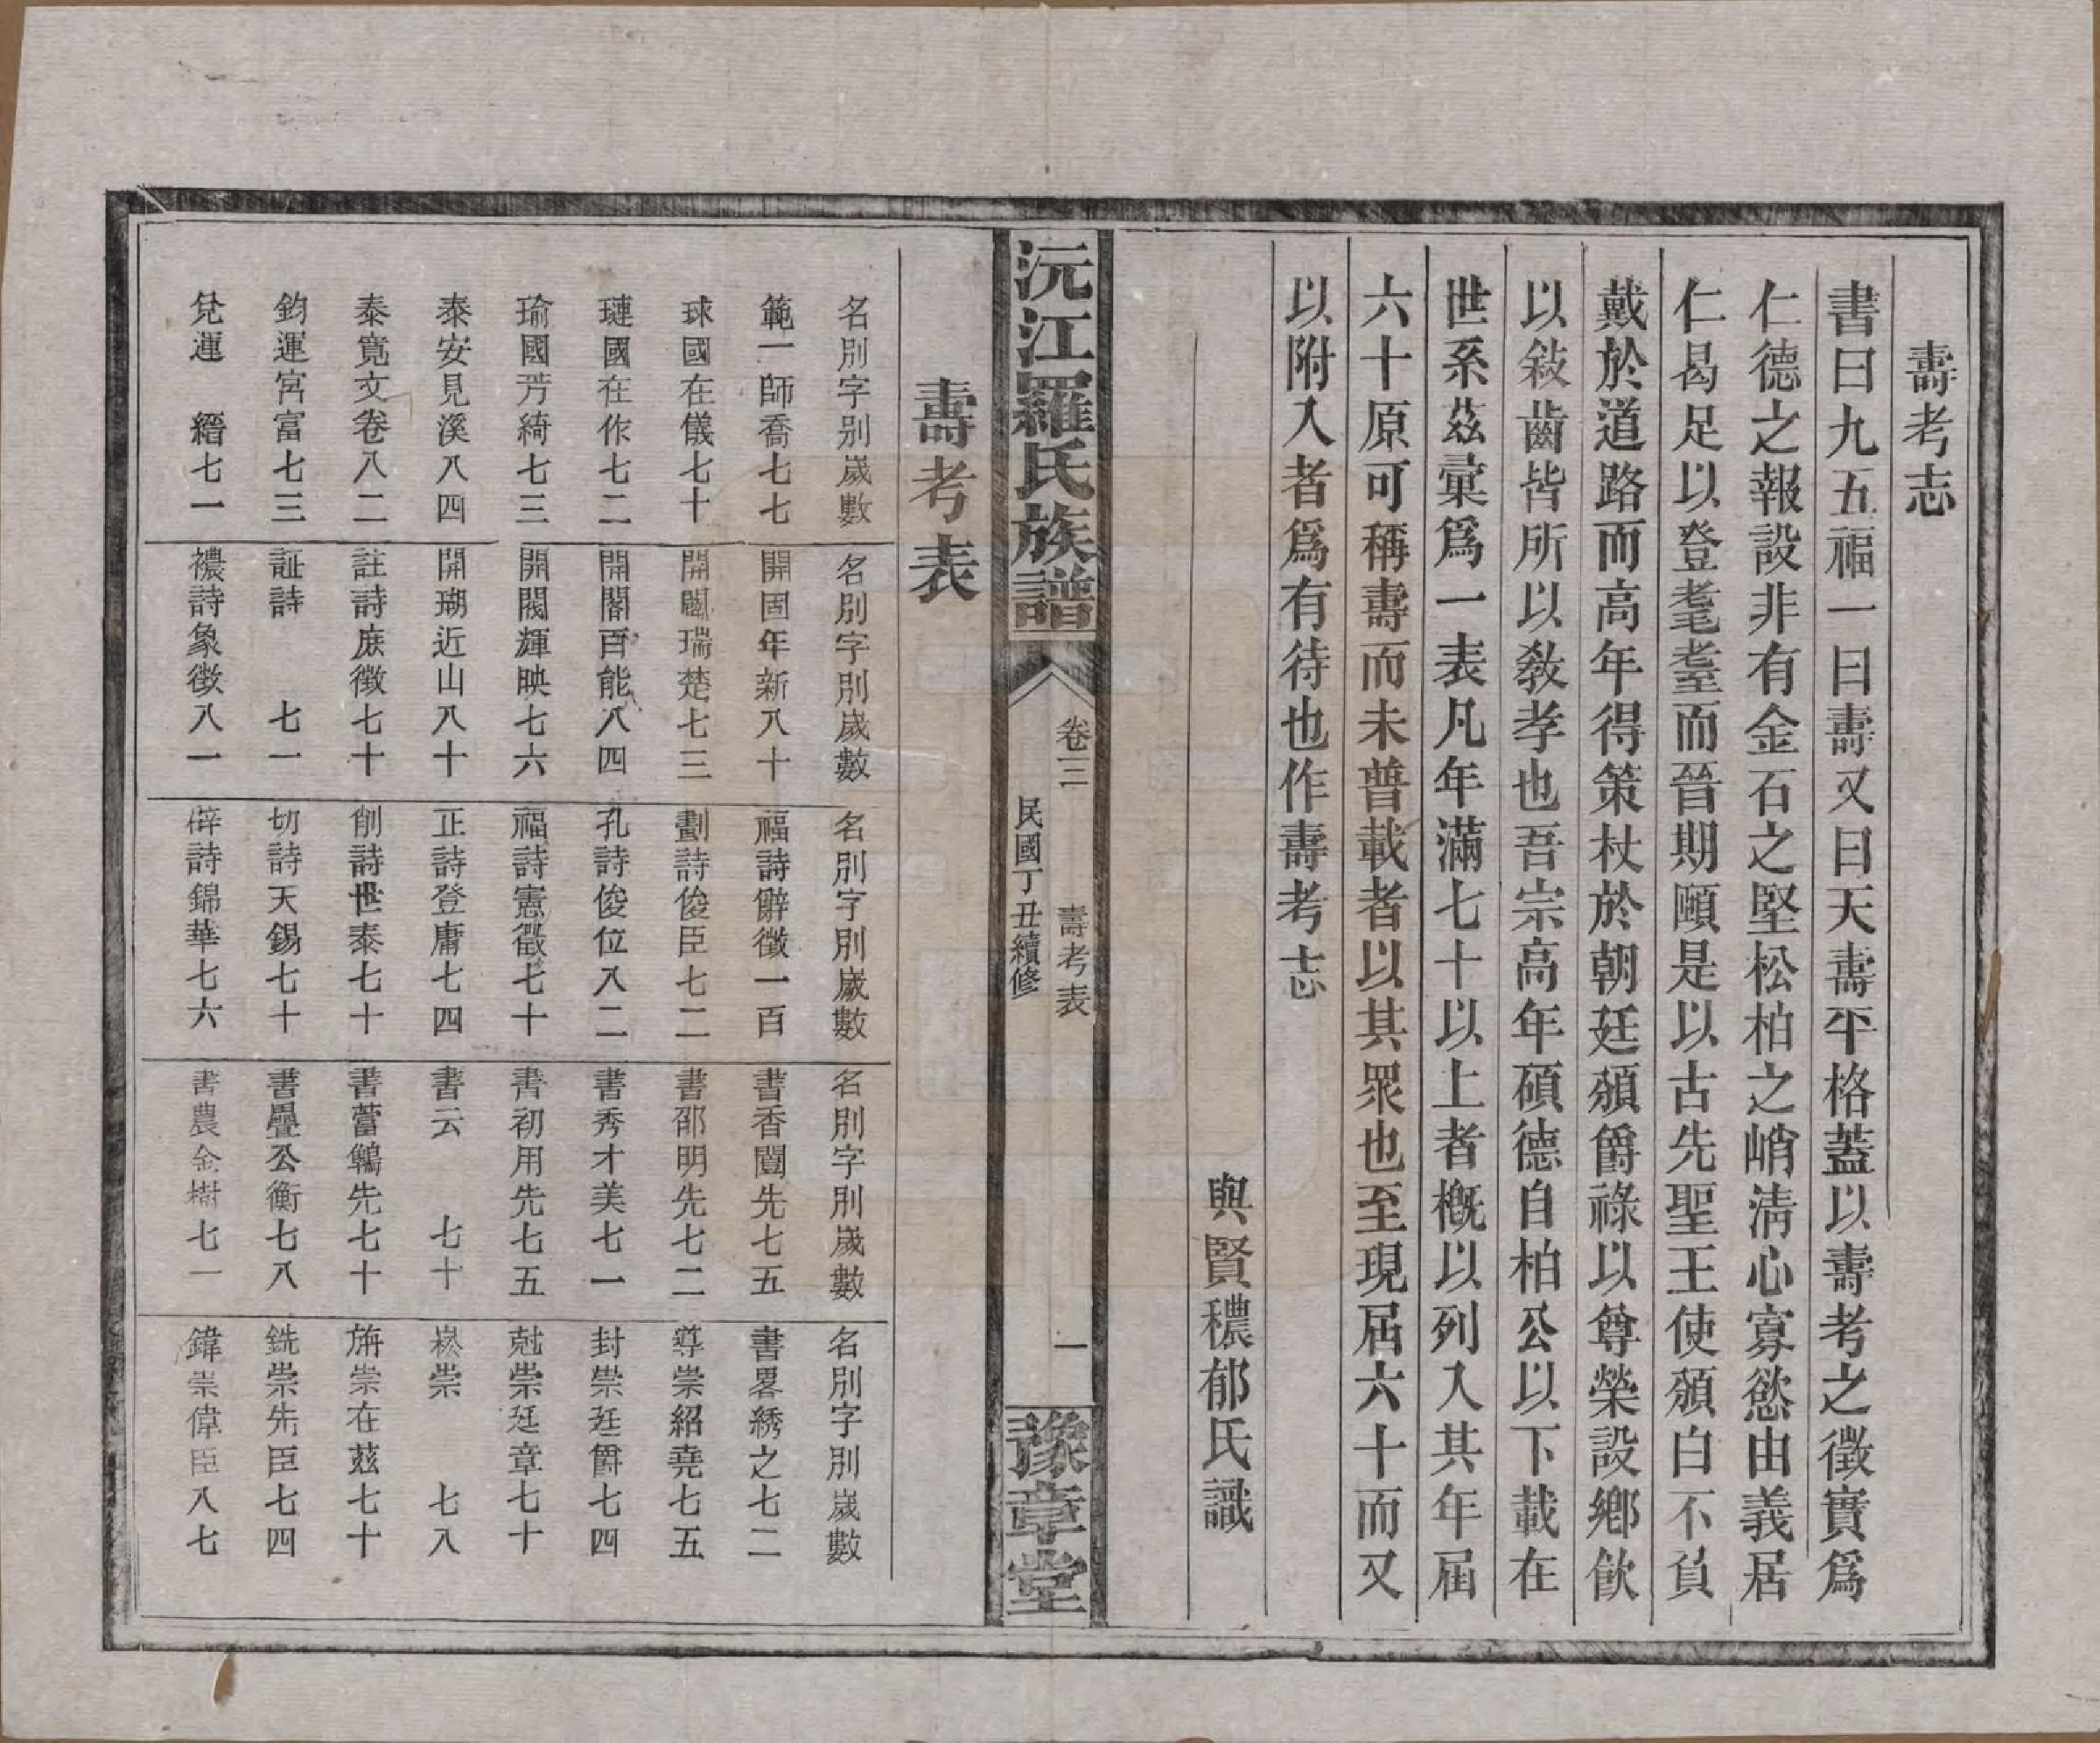 壽考志
書曰九五福一曰壽又曰天壽平格蓋以壽考之徵實爲
仁德之報設非有金石之堅松柏之峭淸心寡慾由義居
仁曷足以登耄耋而晉期頤是以古先聖王使頒白不負
戴於道路而高年得策杖於朝廷頒爵祿以尊榮設鄕飮
以敍齒皆所以敎孝也吾宗高年碩德自柏公以下載在
世系茲彙爲一表凡年滿七十以上者槪以列入其年屆
六十原可稱壽而未普載者以其眾也至現居六十而又
以附入者爲有待也作壽考志
與賢穠郁氏識
沅江羅氏族譜
卷三
壽考表
民國丁丑續修
一
豫章堂
壽考表
名別字別歲數
範一師喬七七
球國在儀七十
璉國在作七二
瑜國芳綺七三
泰安見溪八四
泰寬文卷八二
鈞運宮富七三
兌運 縉七一
名別字別歲數
開固年新八十
開闖瑞楚七三
開閣百能八四
開閥輝映七六
開瑚近山八十
註詩庶徵七十
証詩 七一
禯詩象徵八一
名別字別歲數
福詩辭徵一百
劃詩俊臣七二
孔詩俊位八二
福詩憲徵七十
正詩登庸七四
削詩世泰七十
切詩天錫七十
辟詩錦華七六
名別字別歲數
書香闓先七五
書郁明先七二
書秀才美七一
書初用先七五
書云 七十
書蕾鵷先七十
書疊公衡七八
書農金樹七一
名別字別歲數
書畧綉之七二
導崇紹堯七五
封崇廷爵七四
尅崇廷章七十
崧崇 七八
旃崇在茲七十
銑崇先臣七四
鍏崇偉臣八七